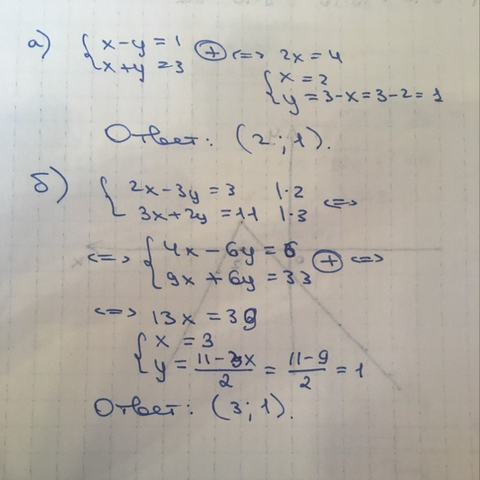 а) { x-y=1 ⊕ <=> 2x=4
x+y=3 { x=2
y=3-x=3-2=1
Ответ: (2;1).
б) { 2x-3y=3 |·2
3x+2y=11 |·3 <=>
<=> { 4x-6y=6
9x+6y=33 ⊕ <=>
<=> 13x=39
{ x=3
y=\frac{11-3x}{2}=\frac{11-9}{2}=1
Ответ: (3;1).